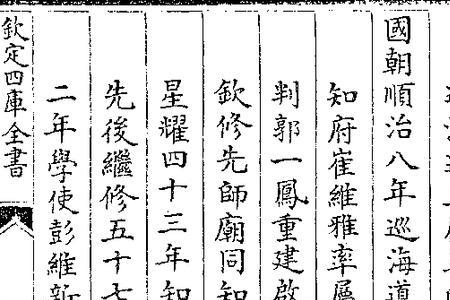 國朝順治八年巡海道
知府崔維雅率屬
判郭一鳳重建啟
欽修先師廟同知
星耀四十三年知
先後繼修五十七
二年學使彭維新
欽定四庫全書